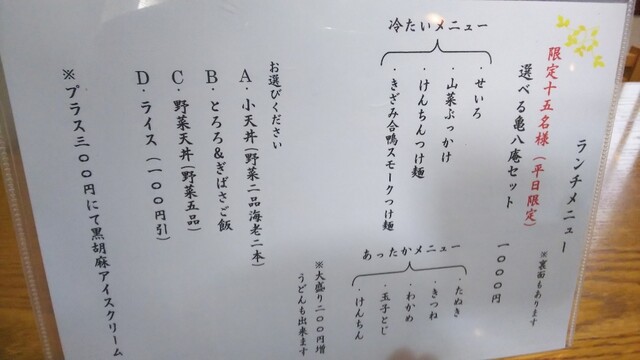 ランチメニュー
※裏面もあります
限定十五名様（平日限定）
選べる亀八庵セット　一〇〇〇円
冷たいメニュー
・せいろ
・山菜ぶっかけ
・けんちんつけ麺
・きざみ合鴨スモークつけ麺
あったかメニュー
・たぬき
・きつね
・わかめ
・玉子とじ
・けんちん
※大盛り二〇〇円増
うどんも出来ます
お選びください
A・小天丼(野菜二品海老二本)
B・とろろ&ぎばさご飯
C・野菜天丼(野菜五品)
D・ライス（一〇〇円引）
※プラス三〇〇円にて黒胡麻アイスクリーム